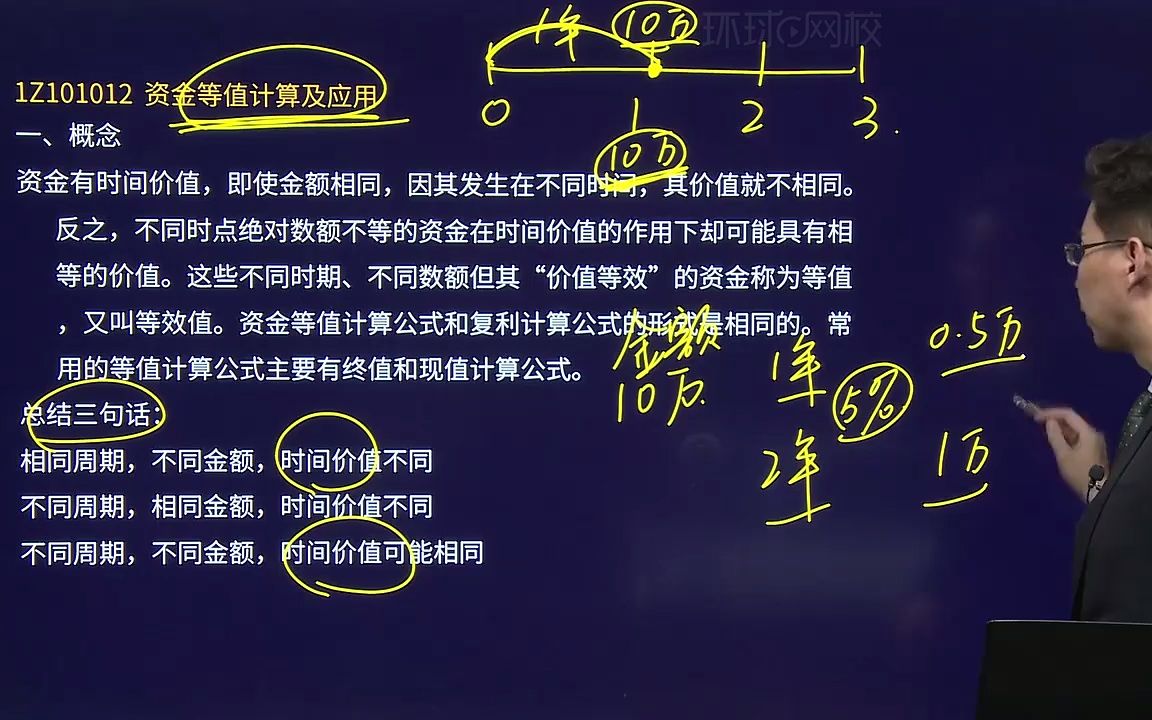 环球网校
1年 10万
0 1 2 3.
10万
1Z101012 资金等值计算及应用
一、概念
资金有时间价值，即使金额相同，因其发生在不同时间，其价值就不相同。
反之，不同时点绝对数额不等的资金在时间价值的作用下却可能具有相
等的价值。这些不同时期、不同数额但其“价值等效”的资金称为等值
，又叫等效值。资金等值计算公式和复利计算公式的形式是相同的。常
用的等值计算公式主要有终值和现值计算公式。
金额 1年 0.5万
10万 5%
2年 1万
总结三句话：
相同周期，不同金额，时间价值不同
不同周期，相同金额，时间价值不同
不同周期，不同金额，时间价值可能相同